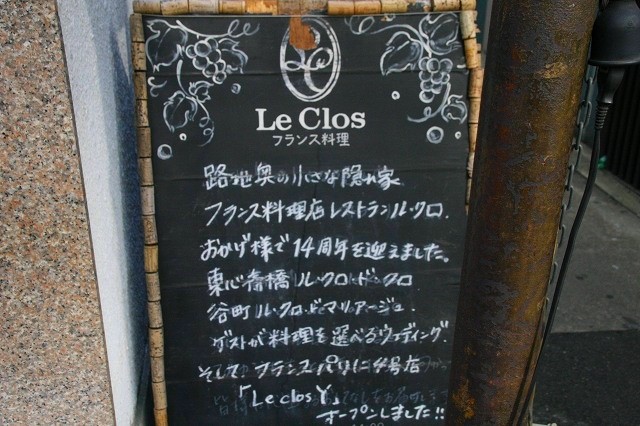 Le Clos
フランス料理
路地奥の小さな隠れ家
フランス料理店レストランル・クロ.
おかげ様で14周年を迎えました。
東心斎橋ル・クロ・ド・クロ
谷町ル・クロ・ド・マリアージュ.
ゲストが料理を選べるウェディング.
そしてフランスパリに4号店
「Le clos Y」
オープンしました!!